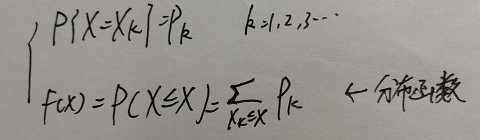 P{X=X_k}=P_k k=1,2,3···
F(x)=P(X≤X)=∑_{X_k≤X} P_k ← 分布函数